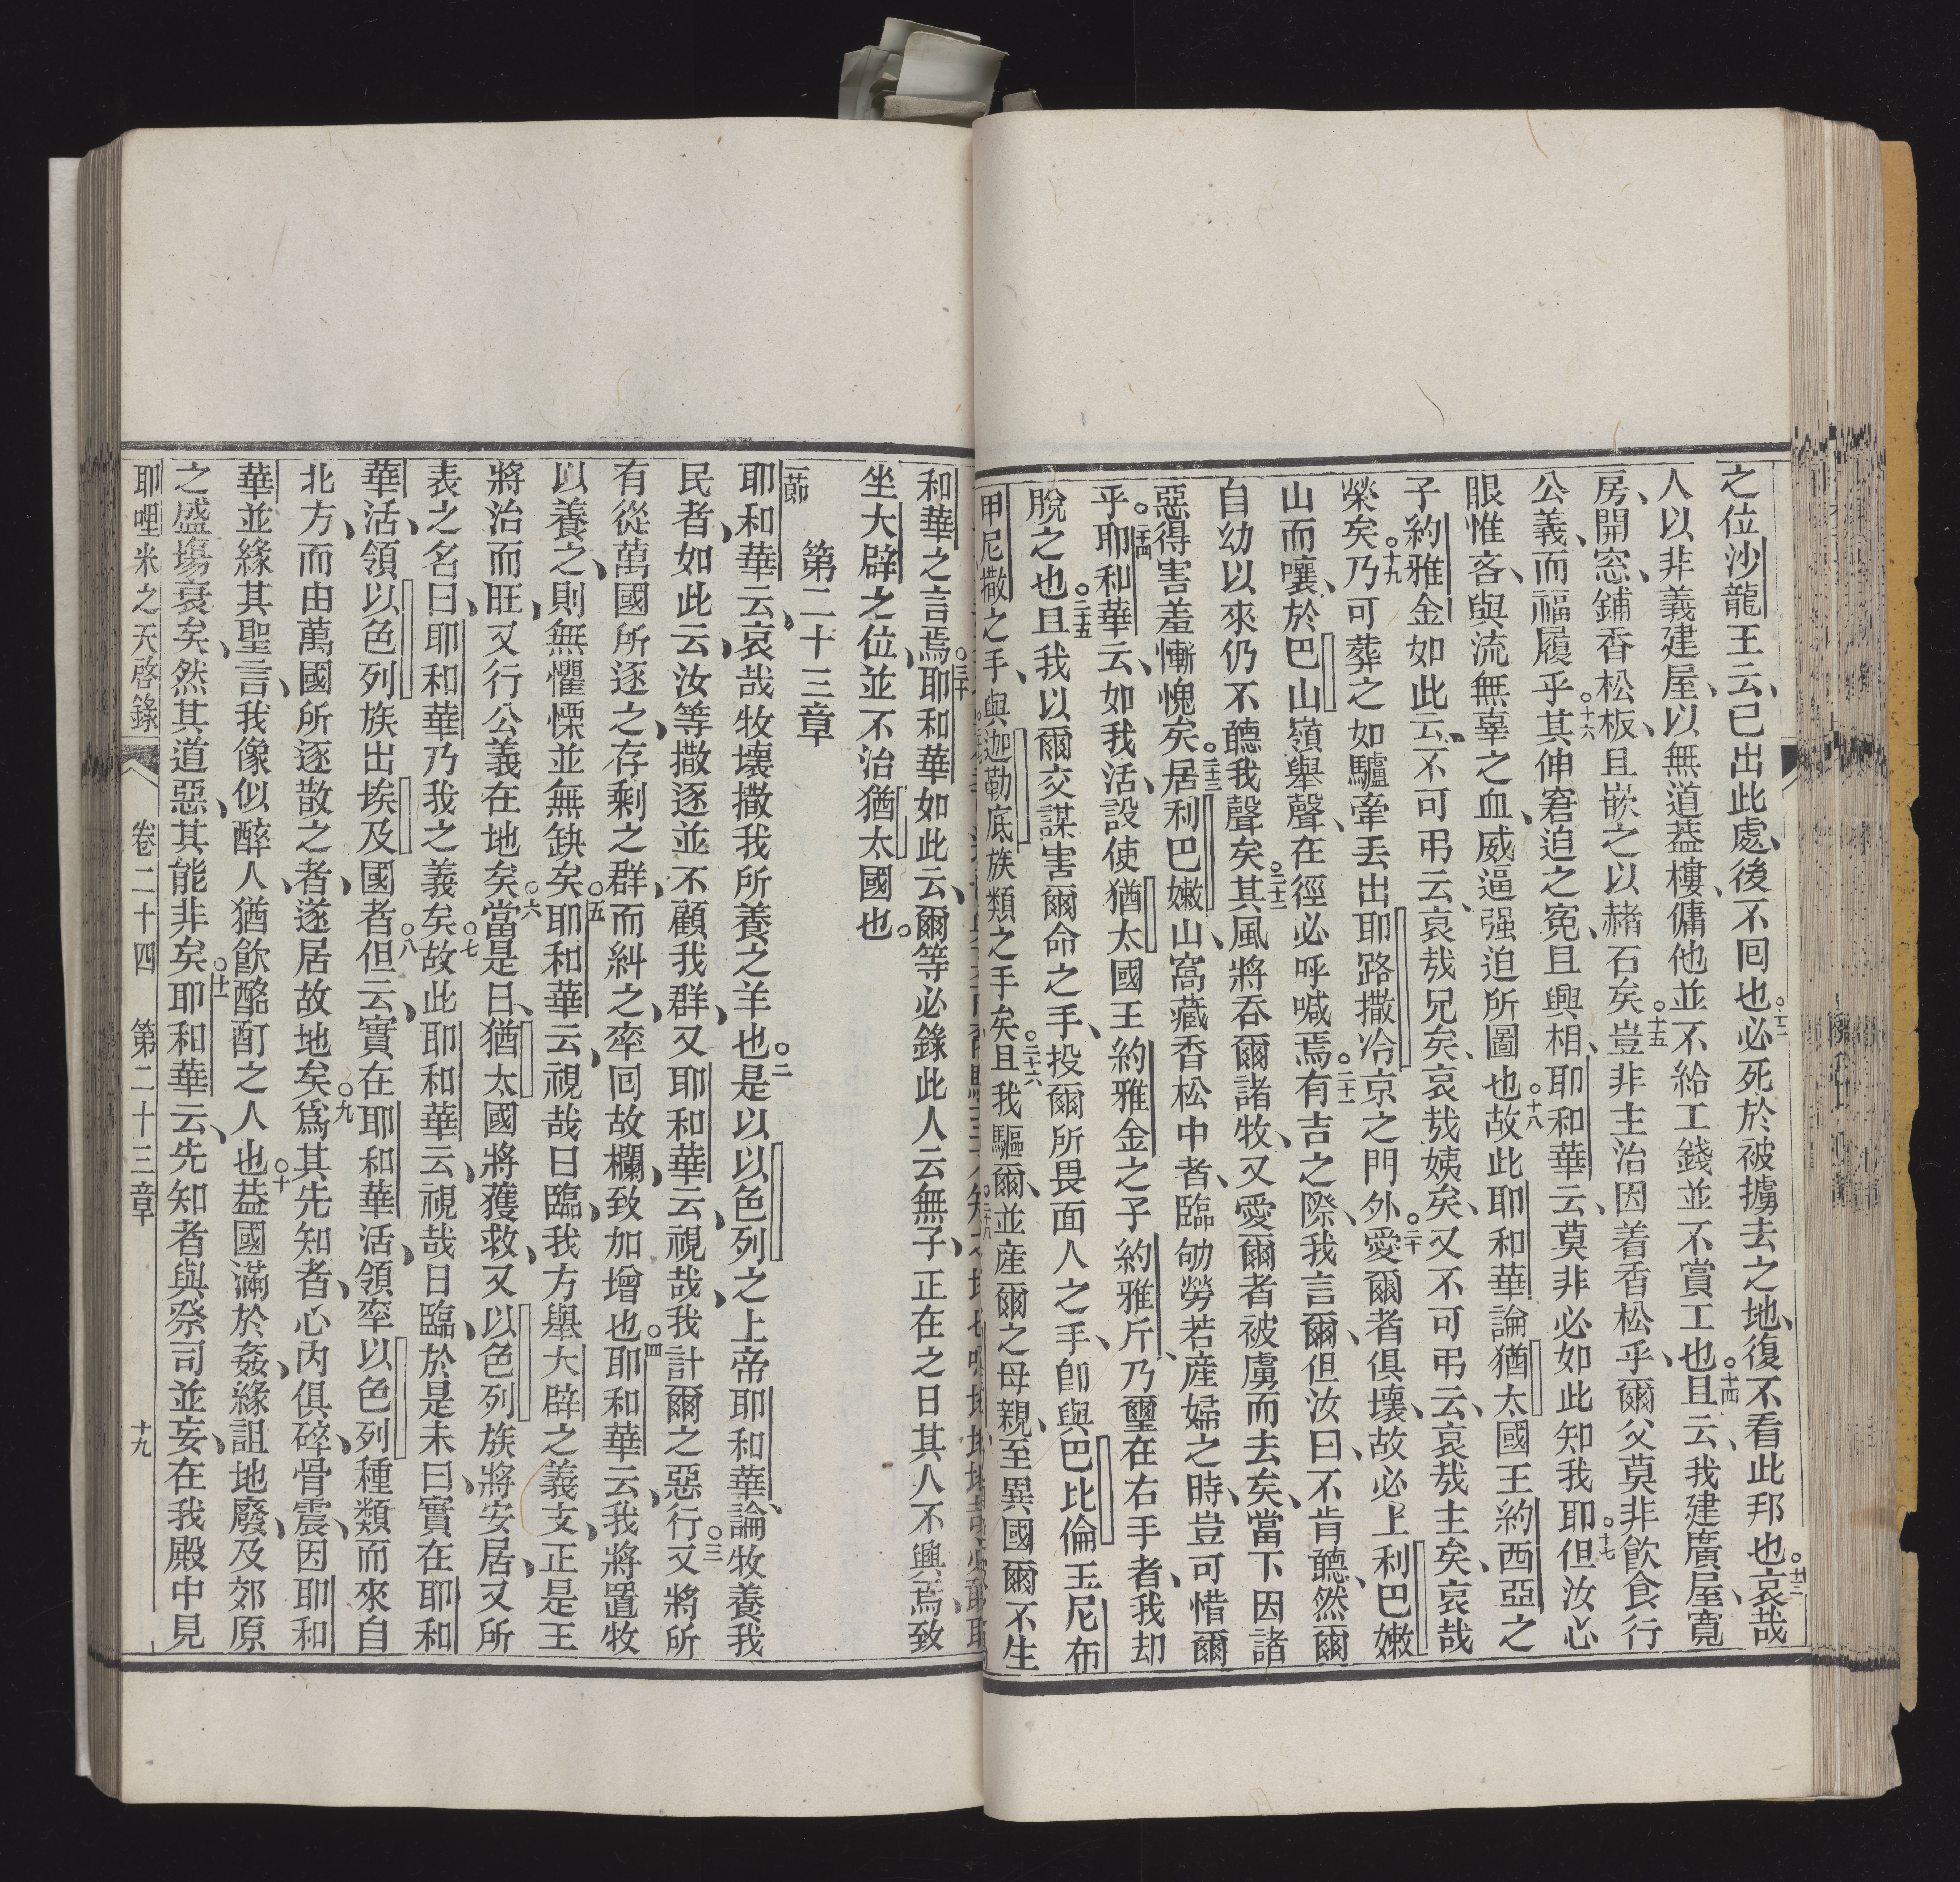 之位沙龍王云、已出此處、後不回也。十二必死於被擄去之地、復不看此邦也。十三哀哉
人以非義建屋、以無道蓋樓、傭他並不給工錢並不賞工也。十四且云、我建廣屋、寬
房、開窓、鋪香松板、且嵌之以赭石矣。十五豈非主治因着香松乎、爾父莫非飮食行
公義、而福履乎。十六其伸窘迫之寃、且興相、耶和華云、莫非必如此知我耶。十七但汝心
眼惟吝、與流無辜之血、威逼强迫所圖也。十八故此耶和華論猶太國王約西亞之
子約雅金如此云、不可弔云、哀哉兄矣、哀哉姨矣、又不可弔云、哀哉主矣、哀哉
榮矣。十九乃可葬之如驢牽丟出耶路撒冾京之門外。二十愛爾者俱壞、故必上利巴嫩
山而嚷、於巴山嶺舉聲、在徑必呼喊焉。二十一有吉之際、我言爾、但汝曰、不肯聽、然爾
自幼以來仍不聽我聲矣。二十二其風將吞爾諸牧、又愛爾者被虜而去矣、當下因諸
惡得害羞慚愧矣。二十三居利巴嫩山、窩藏香松中者、臨劬勞若產婦之時、豈可惜爾
乎。二十四耶和華云、如我活、設使猶太國王約雅金之子約雅斤、乃璽在右手者、我却
脫之也。二十五且我以爾交謀害爾命之手、投爾所畏面人之手、卽與巴比倫王尼布
甲尼撒之手、與迦勒底族類之手矣。二十六且我驅爾、並産爾之母親、至異國爾不生
和華之言焉。三十耶和華如此云、爾等必錄此人云無子、正在之日其人不興焉、致
坐大辟之位、並不治猶太國也。
第二十三章
一節
耶和華云、哀哉牧壞撒我所養之羊也。二是以以色列之上帝耶和華、論牧養我
民者、如此云、汝等撒逐並不顧我群、又耶和華云、視哉、我計爾之惡行。三又將所
有從萬國所逐之、存剩之群、而糾之、牽回故欄、致加增也。四耶和華云、我將置牧
以養之、則無懼慄並無缺矣。五耶和華云、視哉日臨、我方舉大辟之義支、正是王
將治而旺、又行公義在地矣。六當是日、猶太國將獲救、又以色列族將安居、又所
表之名曰、耶和華乃我之義矣。七故此耶和華云、視哉日臨、於是未曰、實在耶和
華活、領以色列族出埃及國者。八但云、實在耶和華活、領牽以色列種類而來自
北方、而由萬國所逐散之者、遂居故地矣。九爲其先知者、心內俱碎、骨震、因耶和
華並緣其聖言、我像似醉人、猶飮酩酊之人也。十葢國滿於姦、緣詛地廢、及郊原
之盛塲衰矣、然其道惡、其能非矣。十一耶和華云、先知者與祭司並妄、在我殿中見
耶哩米之天啓錄 卷二十四 第二十三章 十九